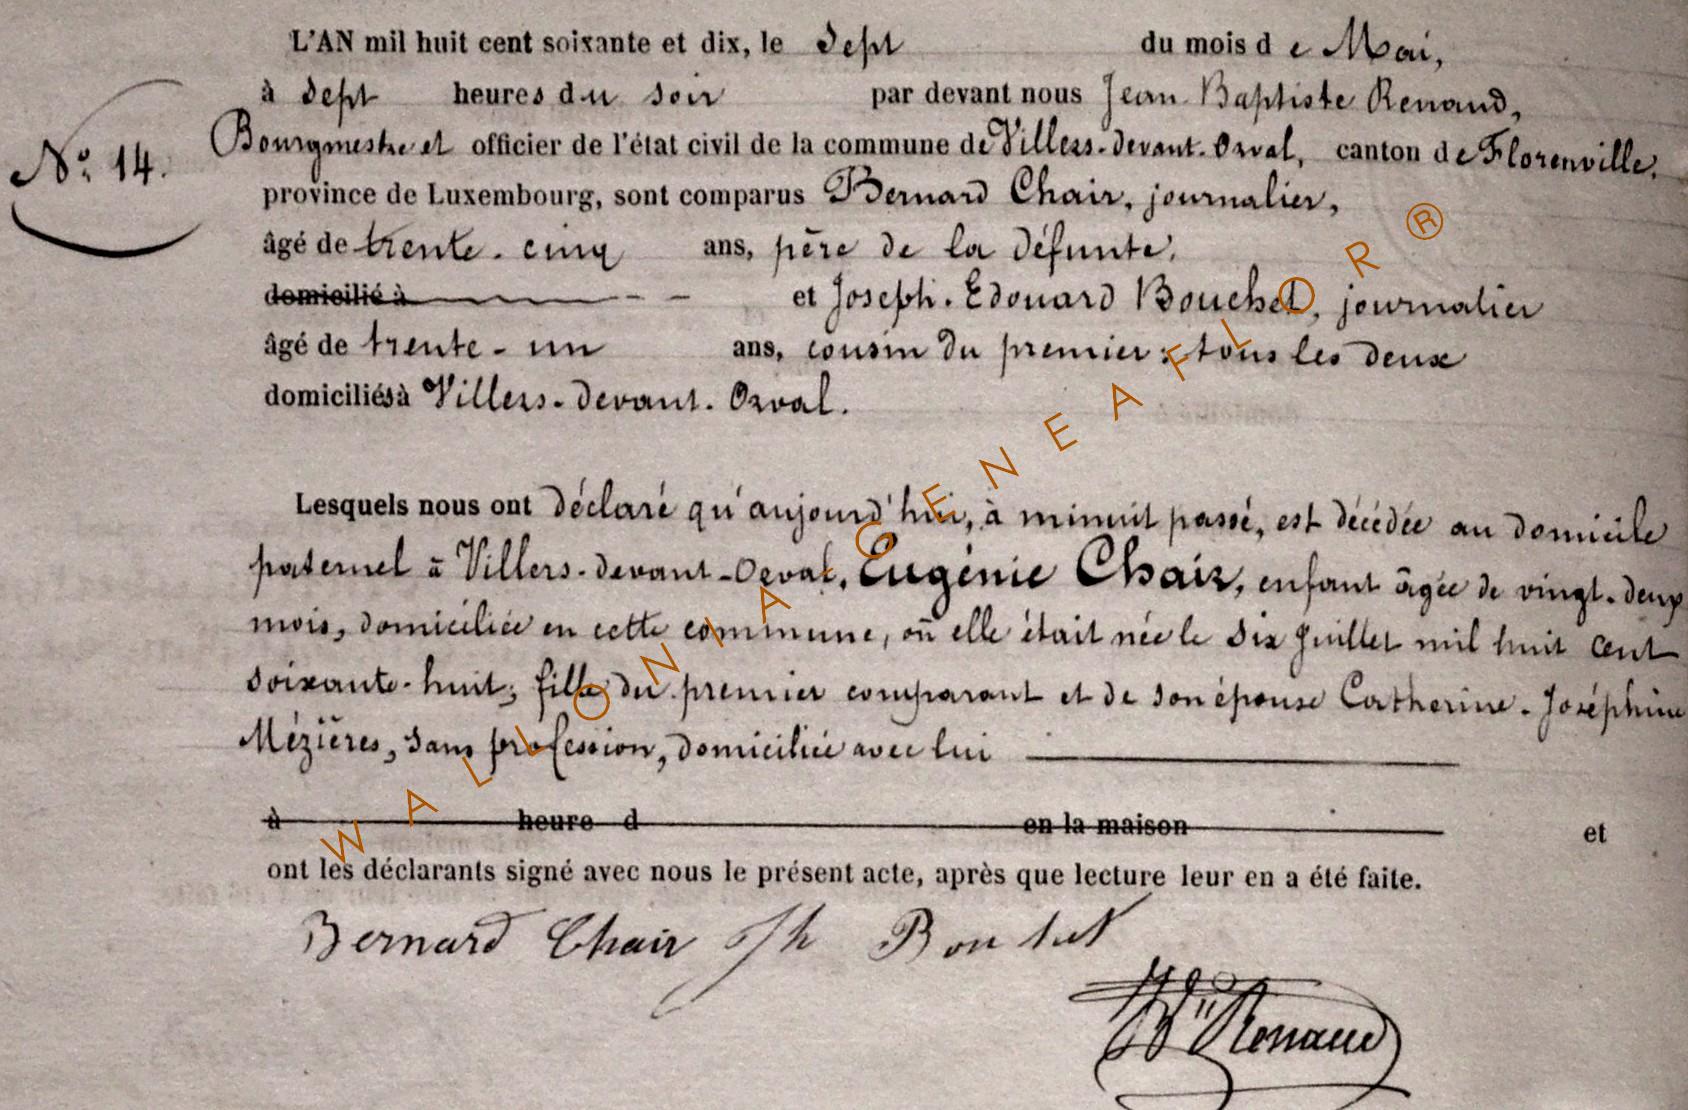 L'AN mil huit cent soixante et dix, le Sept du mois de Mai,
à Sept heures du soir par devant nous Jean Baptiste Renaud,
Bourgmestre et officier de l'état civil de la commune de Villers-devant-Orval, canton de Florenville,
N° 14.
province de Luxembourg, sont comparus Bernard Chair, journalier,
âgé de trente-cinq ans, père de la défunte,
domicilié à et Joseph-Edouard Bouchet, journalier
âgé de trente-un ans, cousin du premier; tous les deux
domiciliés à Villers-devant-Orval.
Lesquels nous ont déclaré qu'aujourd'hui, à minuit passé, est décédée au domicile
paternel à Villers-devant-Orval, Eugénie Chair, enfant âgée de vingt-deux
mois, domiciliée en cette commune, où elle était née le six Juillet mil huit cent
soixante-huit; fille du premier comparant et de son épouse Catherine-Joséphine
Mézières, sans profession, domiciliée avec lui
à heure d en la maison et
ont les déclarants signé avec nous le présent acte, après que lecture leur en a été faite.
Bernard Chair Jh
Renaud
WALLONIA-GENEAFLOR®